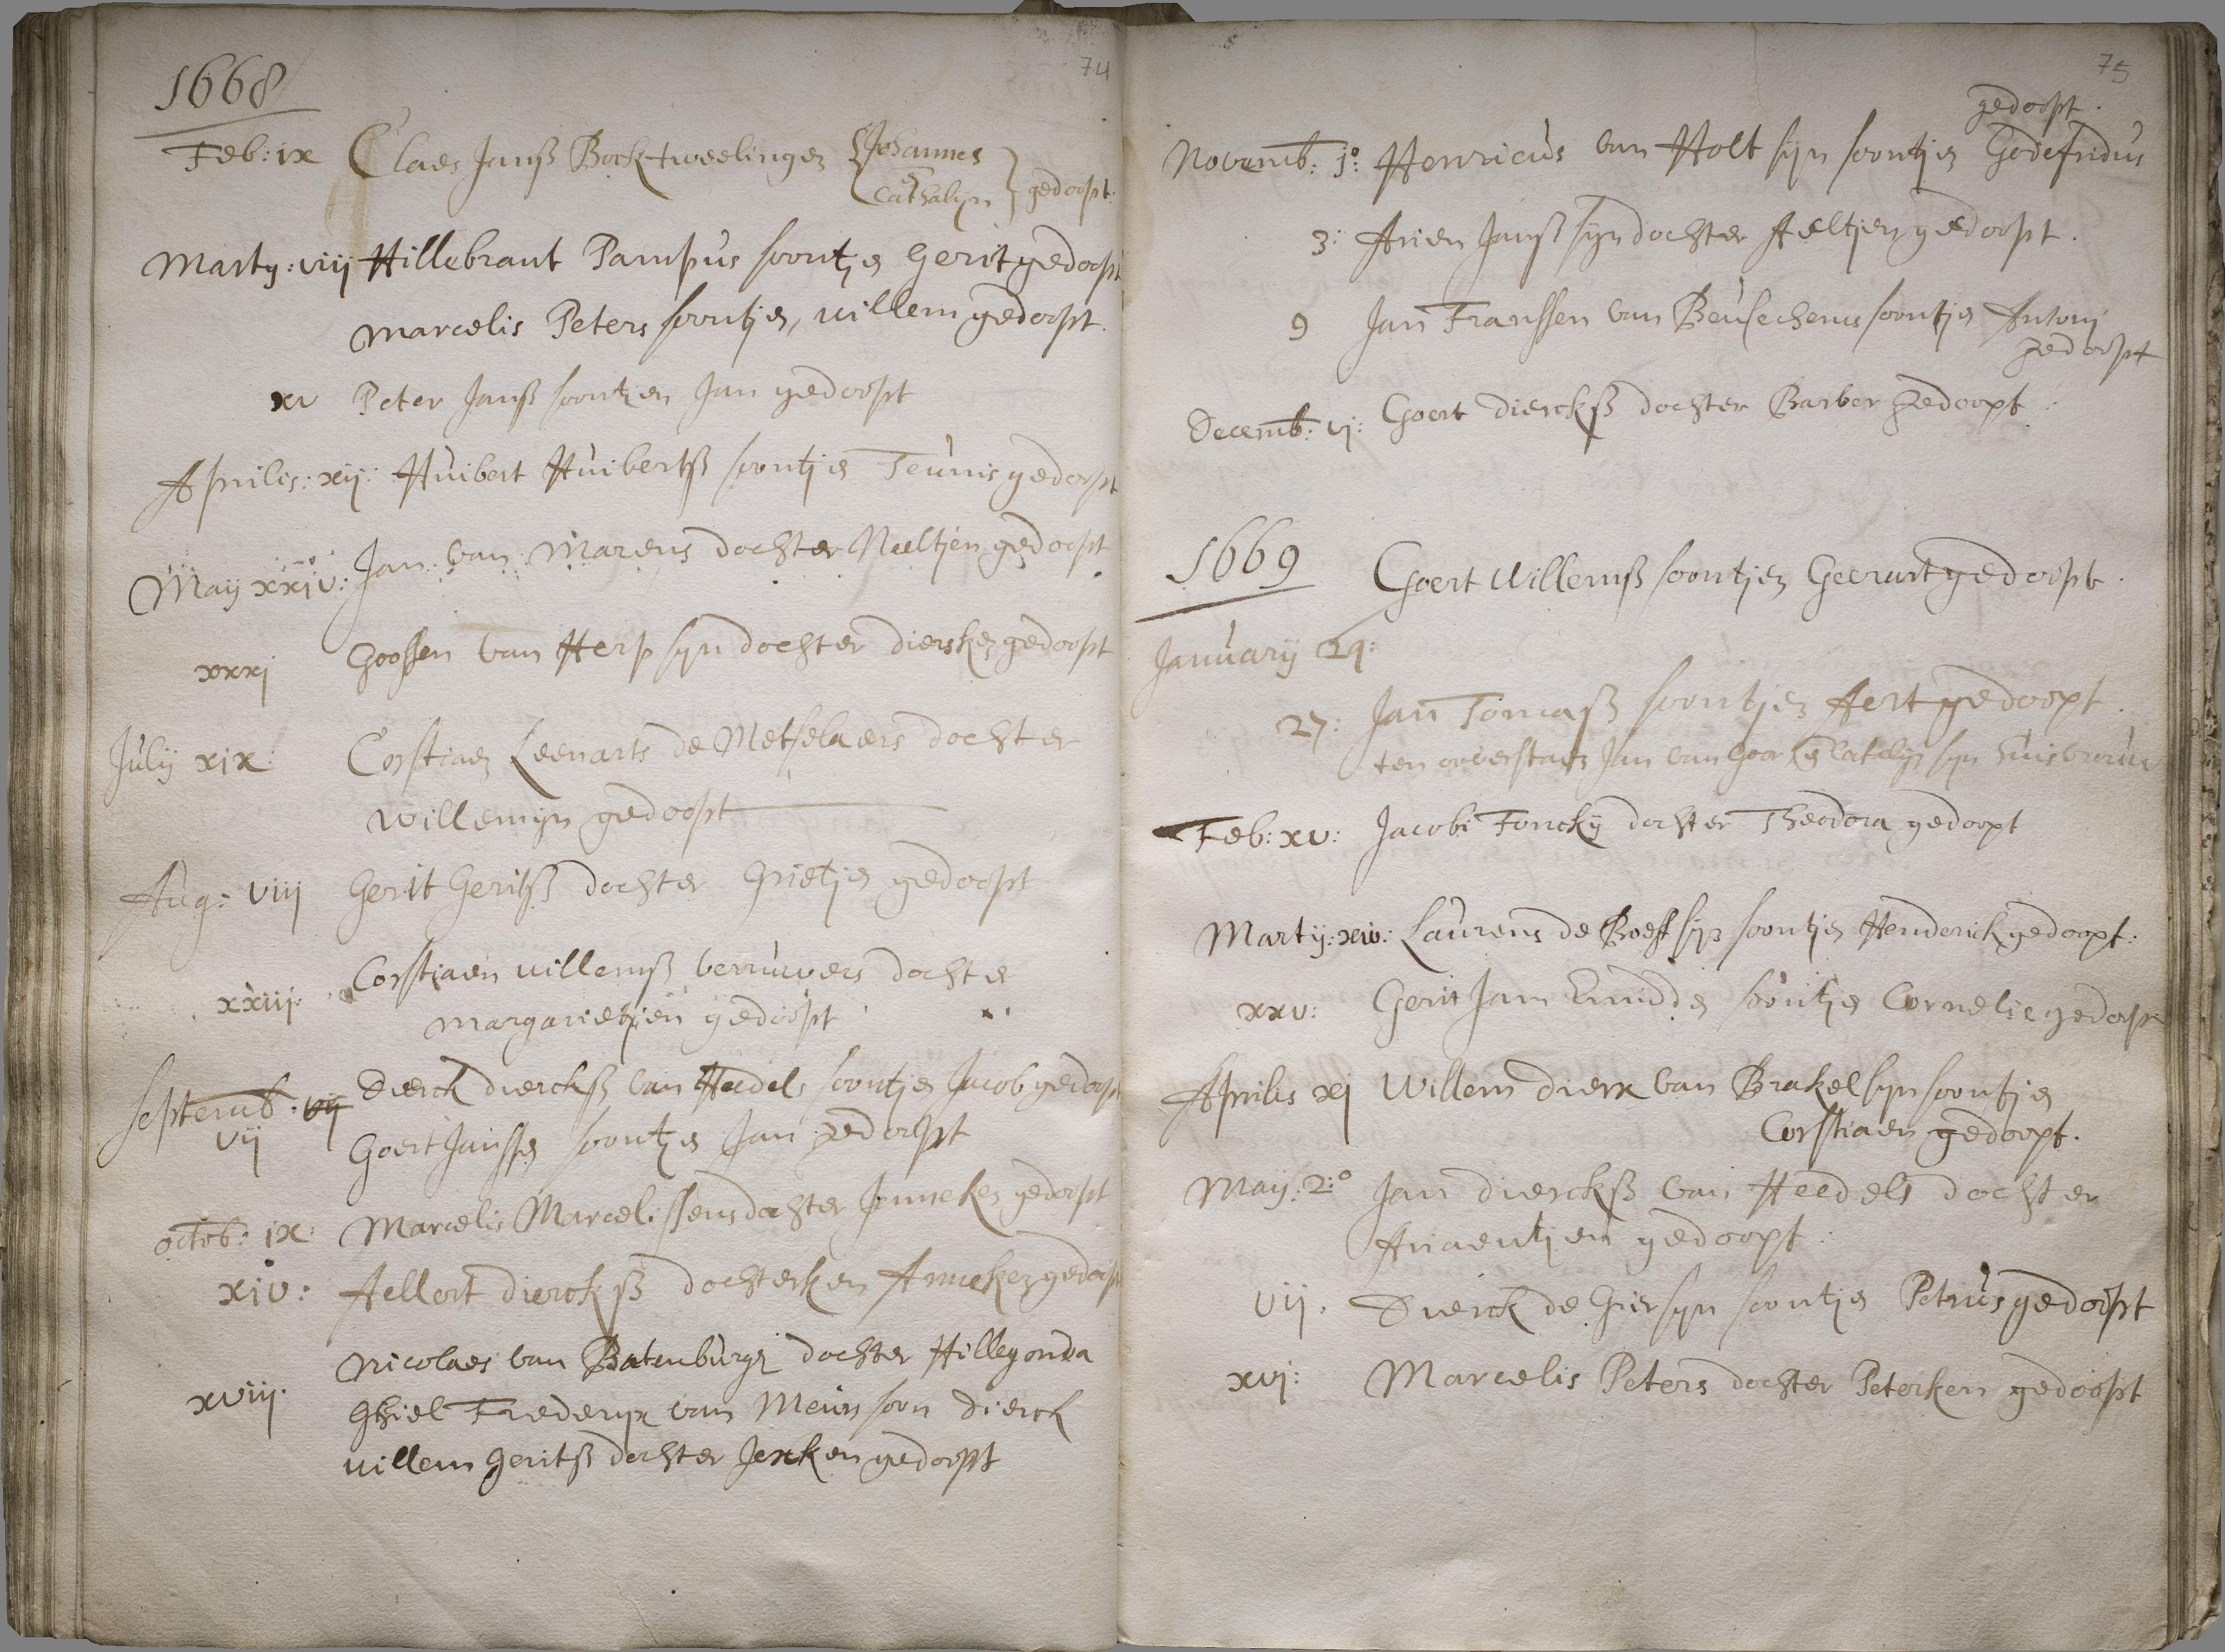 74
1668
Feb: ix Claes Janß Bock tweelingen Johannes
en Cathalyn gedoopt.
Martij: viij Hillebrant Pampus soontjen Gerit gedoopt
Marcelis Peters soontjen, willem gedoopt.
xv Peter Janß soontjen Jan gedoopt
Aprilis: xij: Huibert Huibertß soontjen Teunis gedoopt
Maij xxiv: Jan van Marens dochter Neeltjen gedoopt
xxxj Goossen van Herp syn dochter diersken gedoopt
Julij xix: Corstiaen Leenarts de Metselaers dochter
willemijn gedoopt
Aug: viij Gerit Geritß dochter Grietjen gedoopt
xxiij: Corstiaen willemß verruwers dochter
margarietjen gedoopt
Septemb: vij Dierck dierckß van Heedels soontjen Jacob gedoopt
vij Goert Janssen soontjen Jan gedoopt
octob: ix: Marcelis Marcelissens dochter Jenneken gedoopt
xiv: Aellert dierckß dochterken Anneken gedoopt
Nicolaes van Batenburgs dochter Hillegonda
xviij. Ghiel Frederyx van Meurs soon dierck
willem Geritß dochter Jexken gedoopt
75
gedoopt.
Novemb: 1o: Henricus van Holt syn soontjen Godefridus
3: Arien Janß syn dochter Aeltjen gedoopt.
9 Jan Franssen van Beusechems soontjen Antonij
gedoopt
Decemb: vj: Goert dierckß dochter Barber gedoopt
1669 Goert Willemß soontjen Geerart gedoopt.
Januarij 24:
27: Jan Tomaß soontjen Aert gedoopt.
ten overstaen Jan van Goor en Catalijn syn huisvrouw
Feb: xv: Jacobi Fonckij dochter Theodora gedoopt
Martij: xiv: Laurens de Boest syn soontjen Henderick gedoopt:
xxv: Gerit Jan soontjen Cornelis gedoopt
Aprilis xj Willem dierx van Brakel syn soontjen
Corstiaen gedoopt.
Maij: 2:o Jan dierckß van Heedels dochter
Ariaentjen gedoopt:
vij. Dierck de Gier syn soontjen Petrus gedoopt
xvj: Marcelis Peters dochter Peterken gedoopt